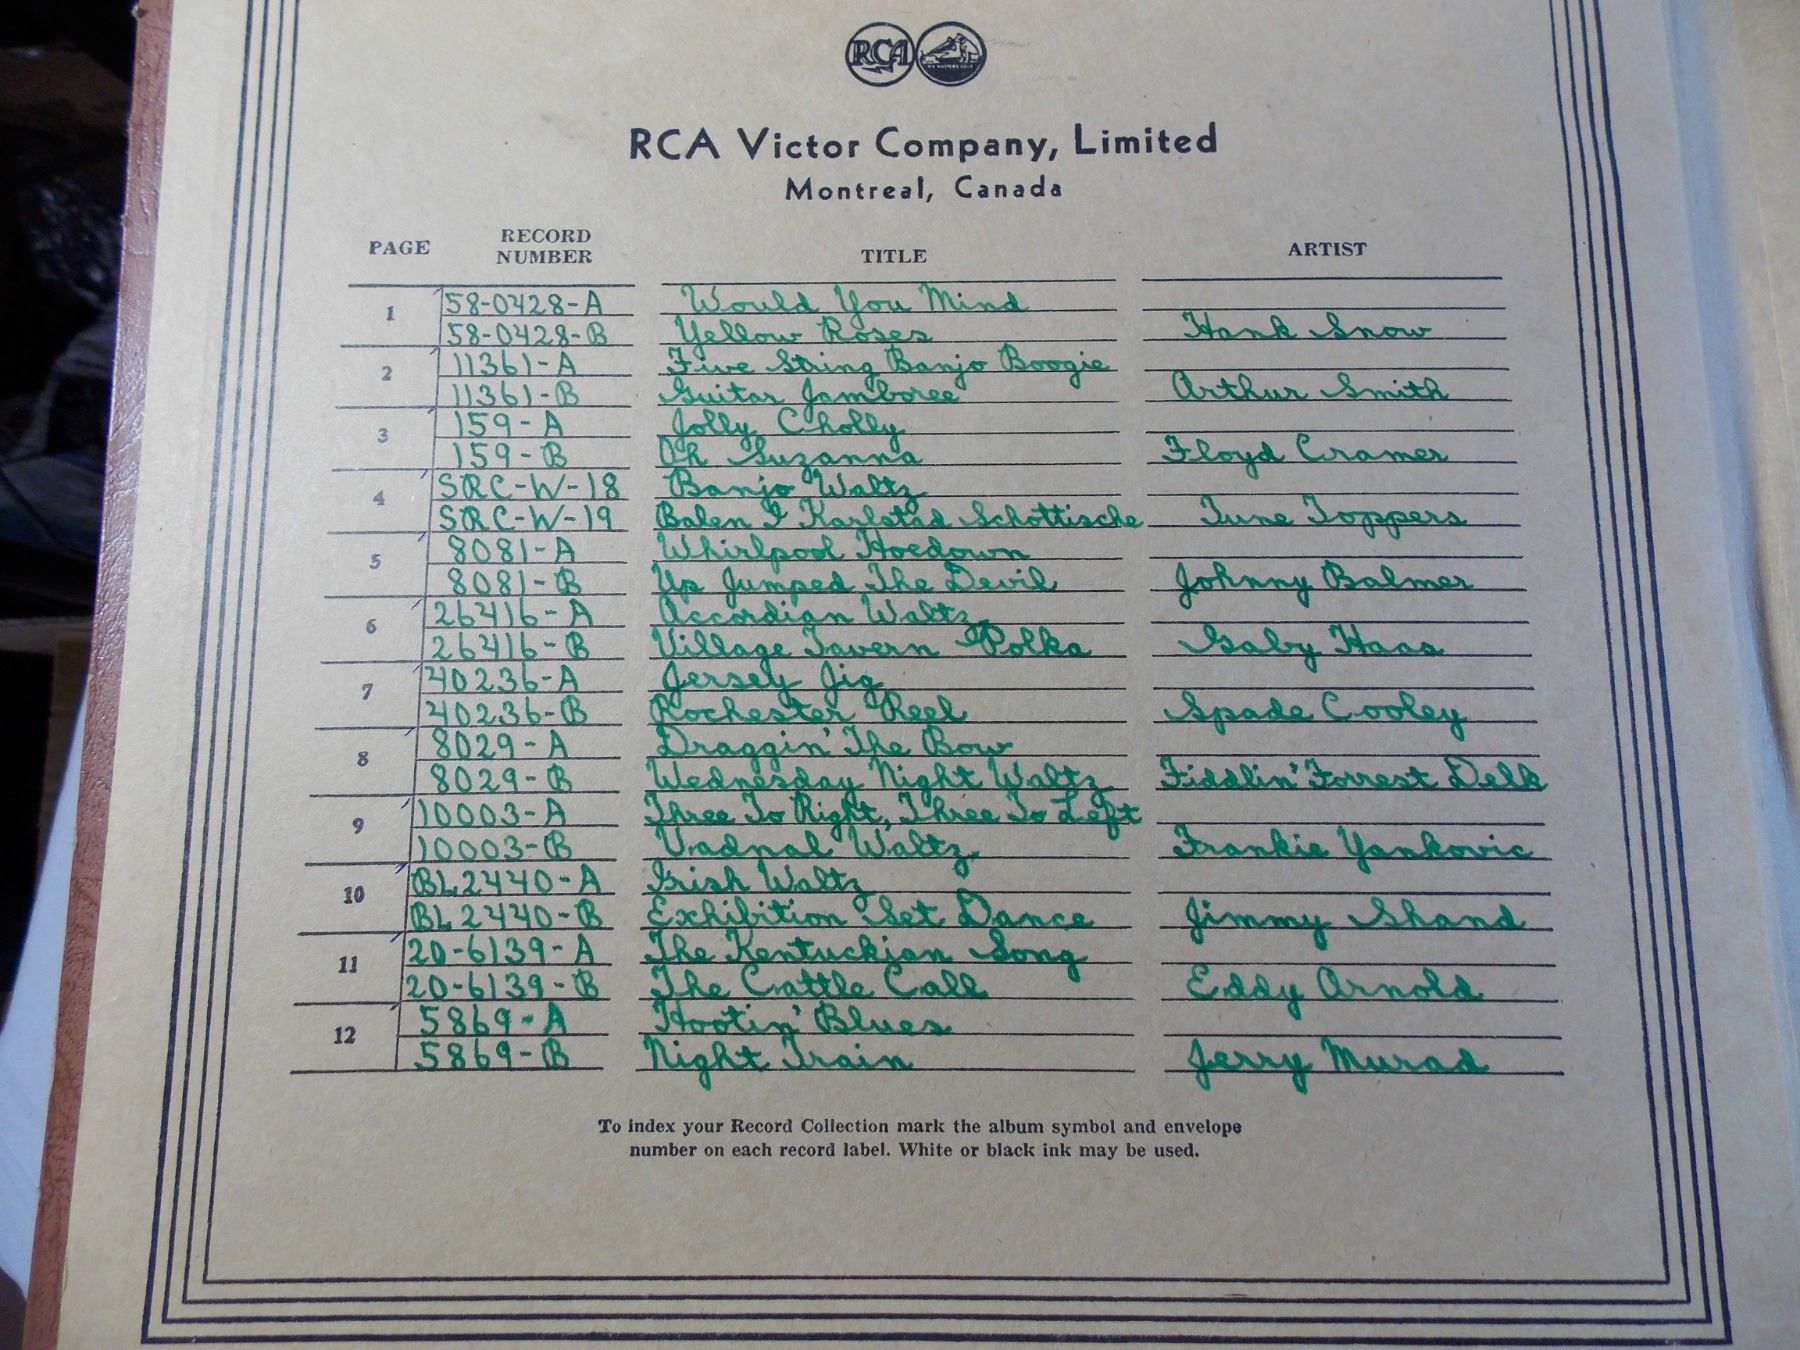 RCA
RCA Victor Company, Limited
Montreal, Canada
PAGE RECORD NUMBER TITLE ARTIST
1 58-0428-A Would You Mind
58-0428-B Yellow Roses Hank Snow
2 11361-A Five String Banjo Boogie
11361-B Guitar Jamboree Arthur Smith
3 159-A Jolly Cholly
159-B Oh Suzanna Floyd Cramer
4 SRC-W-18 Banjo Waltz
SRC-W-19 Balen I Karlstad Schottische Tune Toppers
5 8081-A Whirlpool Hoedown
8081-B Up Jumped The Devil Johnny Balmer
6 26416-A Accordian Waltz
26416-B Village Tavern Polka Gaby Haas
7 40236-A Jersey Jig
40236-B Rochester Reel Spade Cooley
8 8029-A Draggin' The Bow
8029-B Wednesday Night Waltz Fiddlin' Forrest Delk
9 10003-A Three To Right, Three To Left
10003-B Vadnal Waltz Frankie Yankovic
10 BL2440-A Irish Waltz
BL2440-B Exhibition Set Dance Jimmy Shand
11 20-6139-A The Kentuckian Song
20-6139-B The Cattle Call Eddy Arnold
12 5869-A Hootin' Blues
5869-B Night Train Jerry Murad
To index your Record Collection mark the album symbol and envelope
number on each record label. White or black ink may be used.